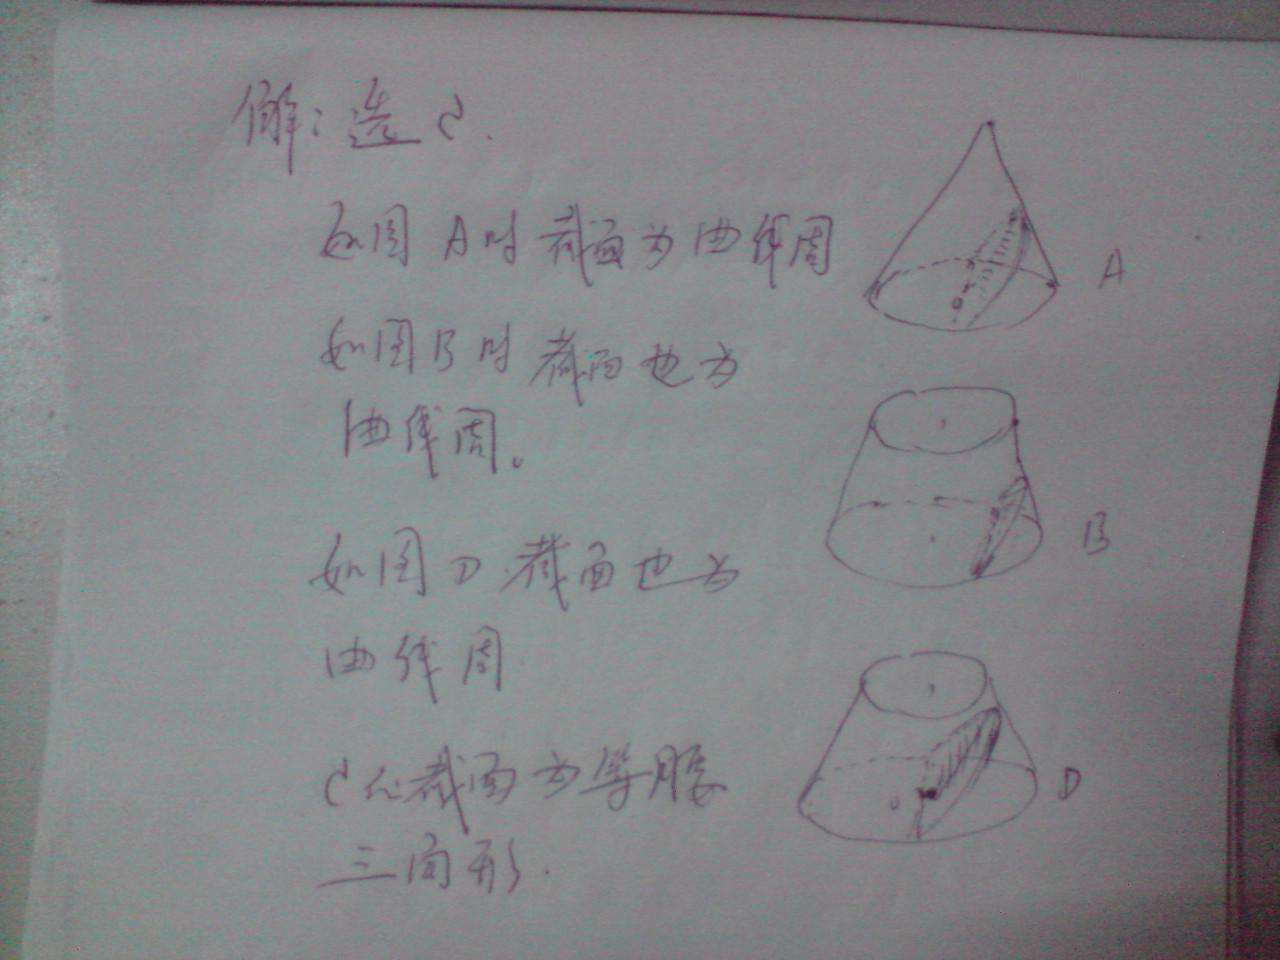 解：选C.
如图A时截面为曲线周
A
如图B时截面也为
曲线周。
B
如图D截面也为
曲线周
D
C 截面为等腰
三角形.